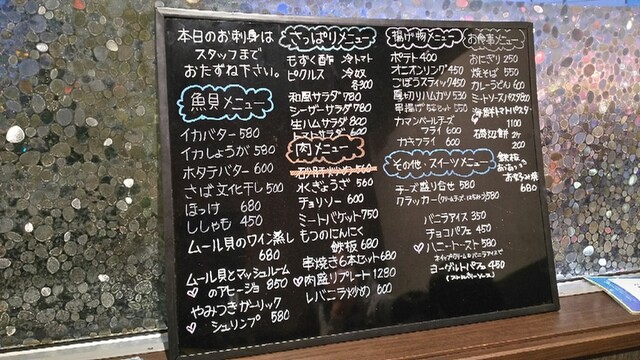 本日のお刺身は
スタッフまで
おたずね下さい。
魚貝メニュー
イカバター 580
イカしょうが 580
ホタテバター 600
さば文化干し 500
ほっけ 680
ししゃも 450
ムール貝のワイン蒸し
680
ムール貝とマッシュルーム
♡のアヒージョ 850
やみつきガーリック
シュリンプ 580
さっぱりメニュー
もずく酢 冷トマト
ピクルス 冷奴
各300
和風サラダ 780
シーザーサラダ 780
生ハムサラダ 800
トマトサラダ 600
肉メニュー
砂肝炒め 560
水ぎょうざ 560
チョリソー 600
ミートバケット 750
もつのにんにく
鉄板 680
串焼き6本セット 680
♡肉盛りプレート 1280
レバニラ炒め 600
揚げ物メニュー
ポテト 400
オニオンリング 450
ごぼうスティック 450
厚切りハムカツ 530
串揚げ セット 550
カマンベールチーズ
フライ 600
カキフライ 600
お食事メニュー
おにぎり 250
焼そば 550
カレーうどん 600
ミートソースパスタ 780
海鮮トマトパスタ
♡ 1100
磯辺餅 2ヶ
200
鉄板
お好み焼
680
その他・スイーツメニュー
チーズ盛り合せ 580
クラッカー 580
バニラアイス 350
チョコパフェ 450
♡ハニートースト 580
ホイップクリーム&バニラアイスで
ヨーグルトパフェ 450